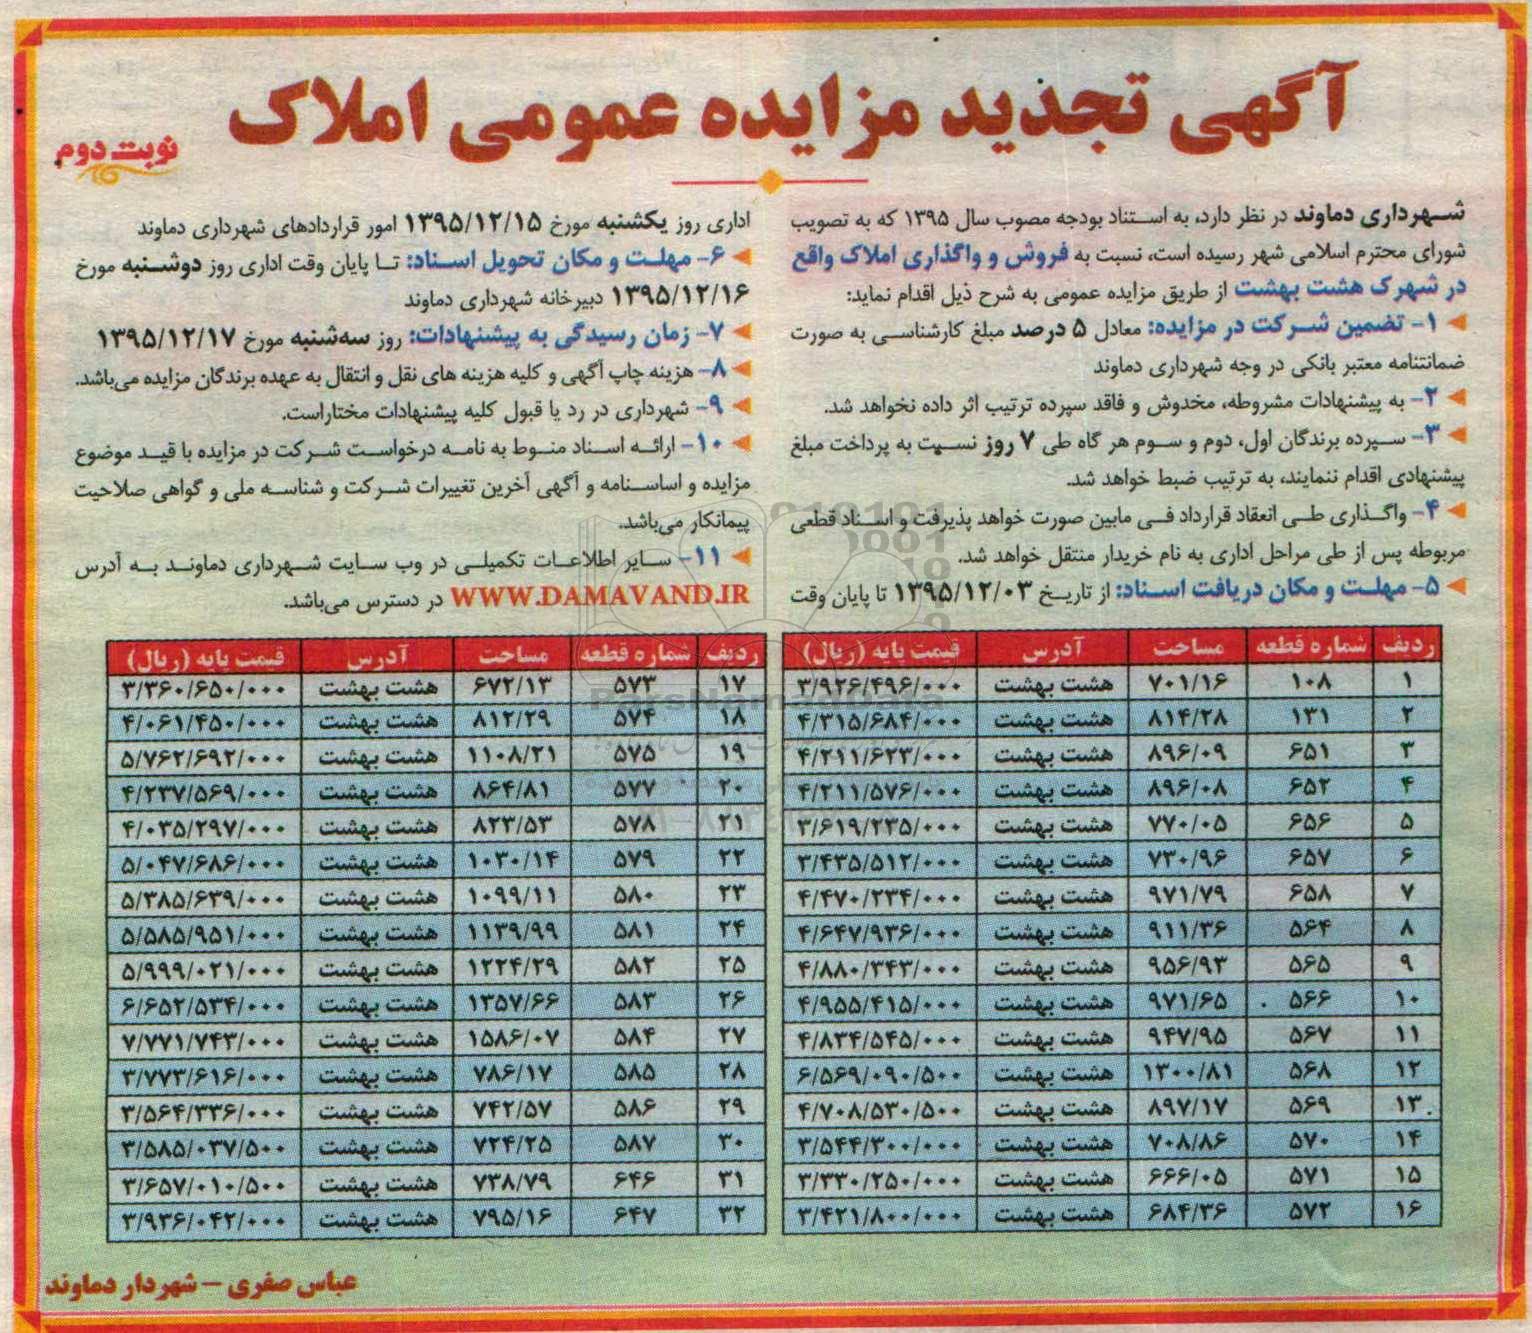 آگهی تجدید مزایده عمومی املاک
نوبت دوم
شهرداری دماوند در نظر دارد، به استناد بودجه مصوب سال ۱۳۹۵ که به تصویب
شورای محترم اسلامی شهر رسیده است، نسبت به فروش و واگذاری املاک واقع
در شهرک هشت بهشت از طریق مزایده عمومی به شرح ذیل اقدام نماید:
۱- تضمین شرکت در مزایده: معادل ۵ درصد مبلغ کارشناسی به صورت
ضمانتنامه معتبر بانکی در وجه شهرداری دماوند
۲- به پیشنهادات مشروطه، مخدوش و فاقد سپرده ترتیب اثر داده نخواهد شد.
۳- سپرده برندگان اول، دوم و سوم هر گاه طی ۷ روز نسبت به پرداخت مبلغ
پیشنهادی اقدام ننمایند، به ترتیب ضبط خواهد شد.
۴- واگذاری طی انعقاد قرارداد فی مابین صورت خواهد پذیرفت و اسناد قطعی
مربوطه پس از طی مراحل اداری به نام خریدار منتقل خواهد شد.
۵- مهلت و مکان دریافت اسناد: از تاریخ ۱۳۹۵/۱۲/۰۳ تا پایان وقت
اداری روز یکشنبه مورخ ۱۳۹۵/۱۲/۱۵ امور قراردادهای شهرداری دماوند
۶- مهلت و مکان تحویل اسناد: تا پایان وقت اداری روز دوشنبه مورخ
۱۳۹۵/۱۲/۱۶ دبیرخانه شهرداری دماوند
۷- زمان رسیدگی به پیشنهادات: روز سه‌شنبه مورخ ۱۳۹۵/۱۲/۱۷
۸- هزینه چاپ آگهی و کلیه هزینه های نقل و انتقال به عهده برندگان مزایده می‌باشد.
۹- شهرداری در رد یا قبول کلیه پیشنهادات مختاراست.
۱۰- ارائه اسناد منوط به نامه درخواست شرکت در مزایده با قید موضوع
مزایده و اساسنامه و آگهی آخرین تغییرات شرکت و شناسه ملی و گواهی صلاحیت
پیمانکار می‌باشد.
۱۱- سایر اطلاعات تکمیلی در وب سایت شهرداری دماوند به آدرس
WWW.DAMAVAND.IR در دسترس می‌باشد.
ردیف شماره قطعه مساحت آدرس قیمت پایه (ریال)
۱ ۱۰۸ ۷۰۱/۱۶ هشت بهشت ۳/۹۲۶/۴۹۶/۰۰۰
۲ ۱۳۱ ۸۱۴/۲۸ هشت بهشت ۴/۳۱۵/۶۸۴/۰۰۰
۳ ۶۵۱ ۸۹۶/۰۹ هشت بهشت ۴/۲۱۱/۶۲۳/۰۰۰
۴ ۶۵۲ ۸۹۶/۰۸ هشت بهشت ۴/۲۱۱/۵۷۶/۰۰۰
۵ ۶۵۶ ۷۷۰/۰۵ هشت بهشت ۳/۶۱۹/۲۳۵/۰۰۰
۶ ۶۵۷ ۷۳۰/۹۶ هشت بهشت ۳/۴۳۵/۵۱۲/۰۰۰
۷ ۶۵۸ ۹۷۱/۷۹ هشت بهشت ۴/۴۷۰/۲۳۴/۰۰۰
۸ ۵۶۴ ۹۱۱/۳۶ هشت بهشت ۴/۶۴۷/۹۳۶/۰۰۰
۹ ۵۶۵ ۹۵۶/۹۳ هشت بهشت ۴/۸۸۰/۳۴۳/۰۰۰
۱۰ ۵۶۶ ۹۷۱/۶۵ هشت بهشت ۴/۹۵۵/۴۱۵/۰۰۰
۱۱ ۵۶۷ ۹۴۷/۹۵ هشت بهشت ۴/۸۳۴/۵۴۵/۰۰۰
۱۲ ۵۶۸ ۱۳۰۰/۸۱ هشت بهشت ۶/۵۶۹/۰۹۰/۵۰۰
۱۳ ۵۶۹ ۸۹۷/۱۷ هشت بهشت ۴/۷۰۸/۵۳۰/۵۰۰
۱۴ ۵۷۰ ۷۰۸/۸۶ هشت بهشت ۳/۵۴۴/۳۰۰/۰۰۰
۱۵ ۵۷۱ ۶۶۶/۰۵ هشت بهشت ۳/۳۳۰/۲۵۰/۰۰۰
۱۶ ۵۷۲ ۶۸۴/۳۶ هشت بهشت ۳/۴۲۱/۸۰۰/۰۰۰
ردیف شماره قطعه مساحت آدرس قیمت پایه (ریال)
۱۷ ۵۷۳ ۶۷۲/۱۳ هشت بهشت ۳/۳۶۰/۶۵۰/۰۰۰
۱۸ ۵۷۴ ۸۱۲/۲۹ هشت بهشت ۴/۰۶۱/۴۵۰/۰۰۰
۱۹ ۵۷۵ ۱۱۰۸/۲۱ هشت بهشت ۵/۷۶۲/۶۹۲/۰۰۰
۲۰ ۵۷۷ ۸۶۴/۸۱ هشت بهشت ۴/۲۳۷/۵۶۹/۰۰۰
۲۱ ۵۷۸ ۸۲۳/۵۳ هشت بهشت ۴/۰۳۵/۲۹۷/۰۰۰
۲۲ ۵۷۹ ۱۰۳۰/۱۴ هشت بهشت ۵/۰۴۷/۶۸۶/۰۰۰
۲۳ ۵۸۰ ۱۰۹۹/۱۱ هشت بهشت ۵/۳۸۵/۶۳۹/۰۰۰
۲۴ ۵۸۱ ۱۱۳۹/۹۹ هشت بهشت ۵/۵۸۵/۹۵۱/۰۰۰
۲۵ ۵۸۲ ۱۲۲۴/۲۹ هشت بهشت ۵/۹۹۹/۰۲۱/۰۰۰
۲۶ ۵۸۳ ۱۳۵۷/۶۶ هشت بهشت ۶/۶۵۲/۵۳۴/۰۰۰
۲۷ ۵۸۴ ۱۵۸۶/۰۷ هشت بهشت ۷/۷۷۱/۷۴۳/۰۰۰
۲۸ ۵۸۵ ۷۸۶/۱۷ هشت بهشت ۳/۷۷۳/۶۱۶/۰۰۰
۲۹ ۵۸۶ ۷۴۲/۵۷ هشت بهشت ۳/۵۶۴/۳۳۶/۰۰۰
۳۰ ۵۸۷ ۷۲۴/۲۵ هشت بهشت ۳/۵۸۵/۰۳۷/۵۰۰
۳۱ ۶۴۶ ۷۳۸/۷۹ هشت بهشت ۳/۶۵۷/۰۱۰/۵۰۰
۳۲ ۶۴۷ ۷۹۵/۱۶ هشت بهشت ۳/۹۳۶/۰۴۲/۰۰۰
عباس صفری – شهردار دماوند
ParsNamadData